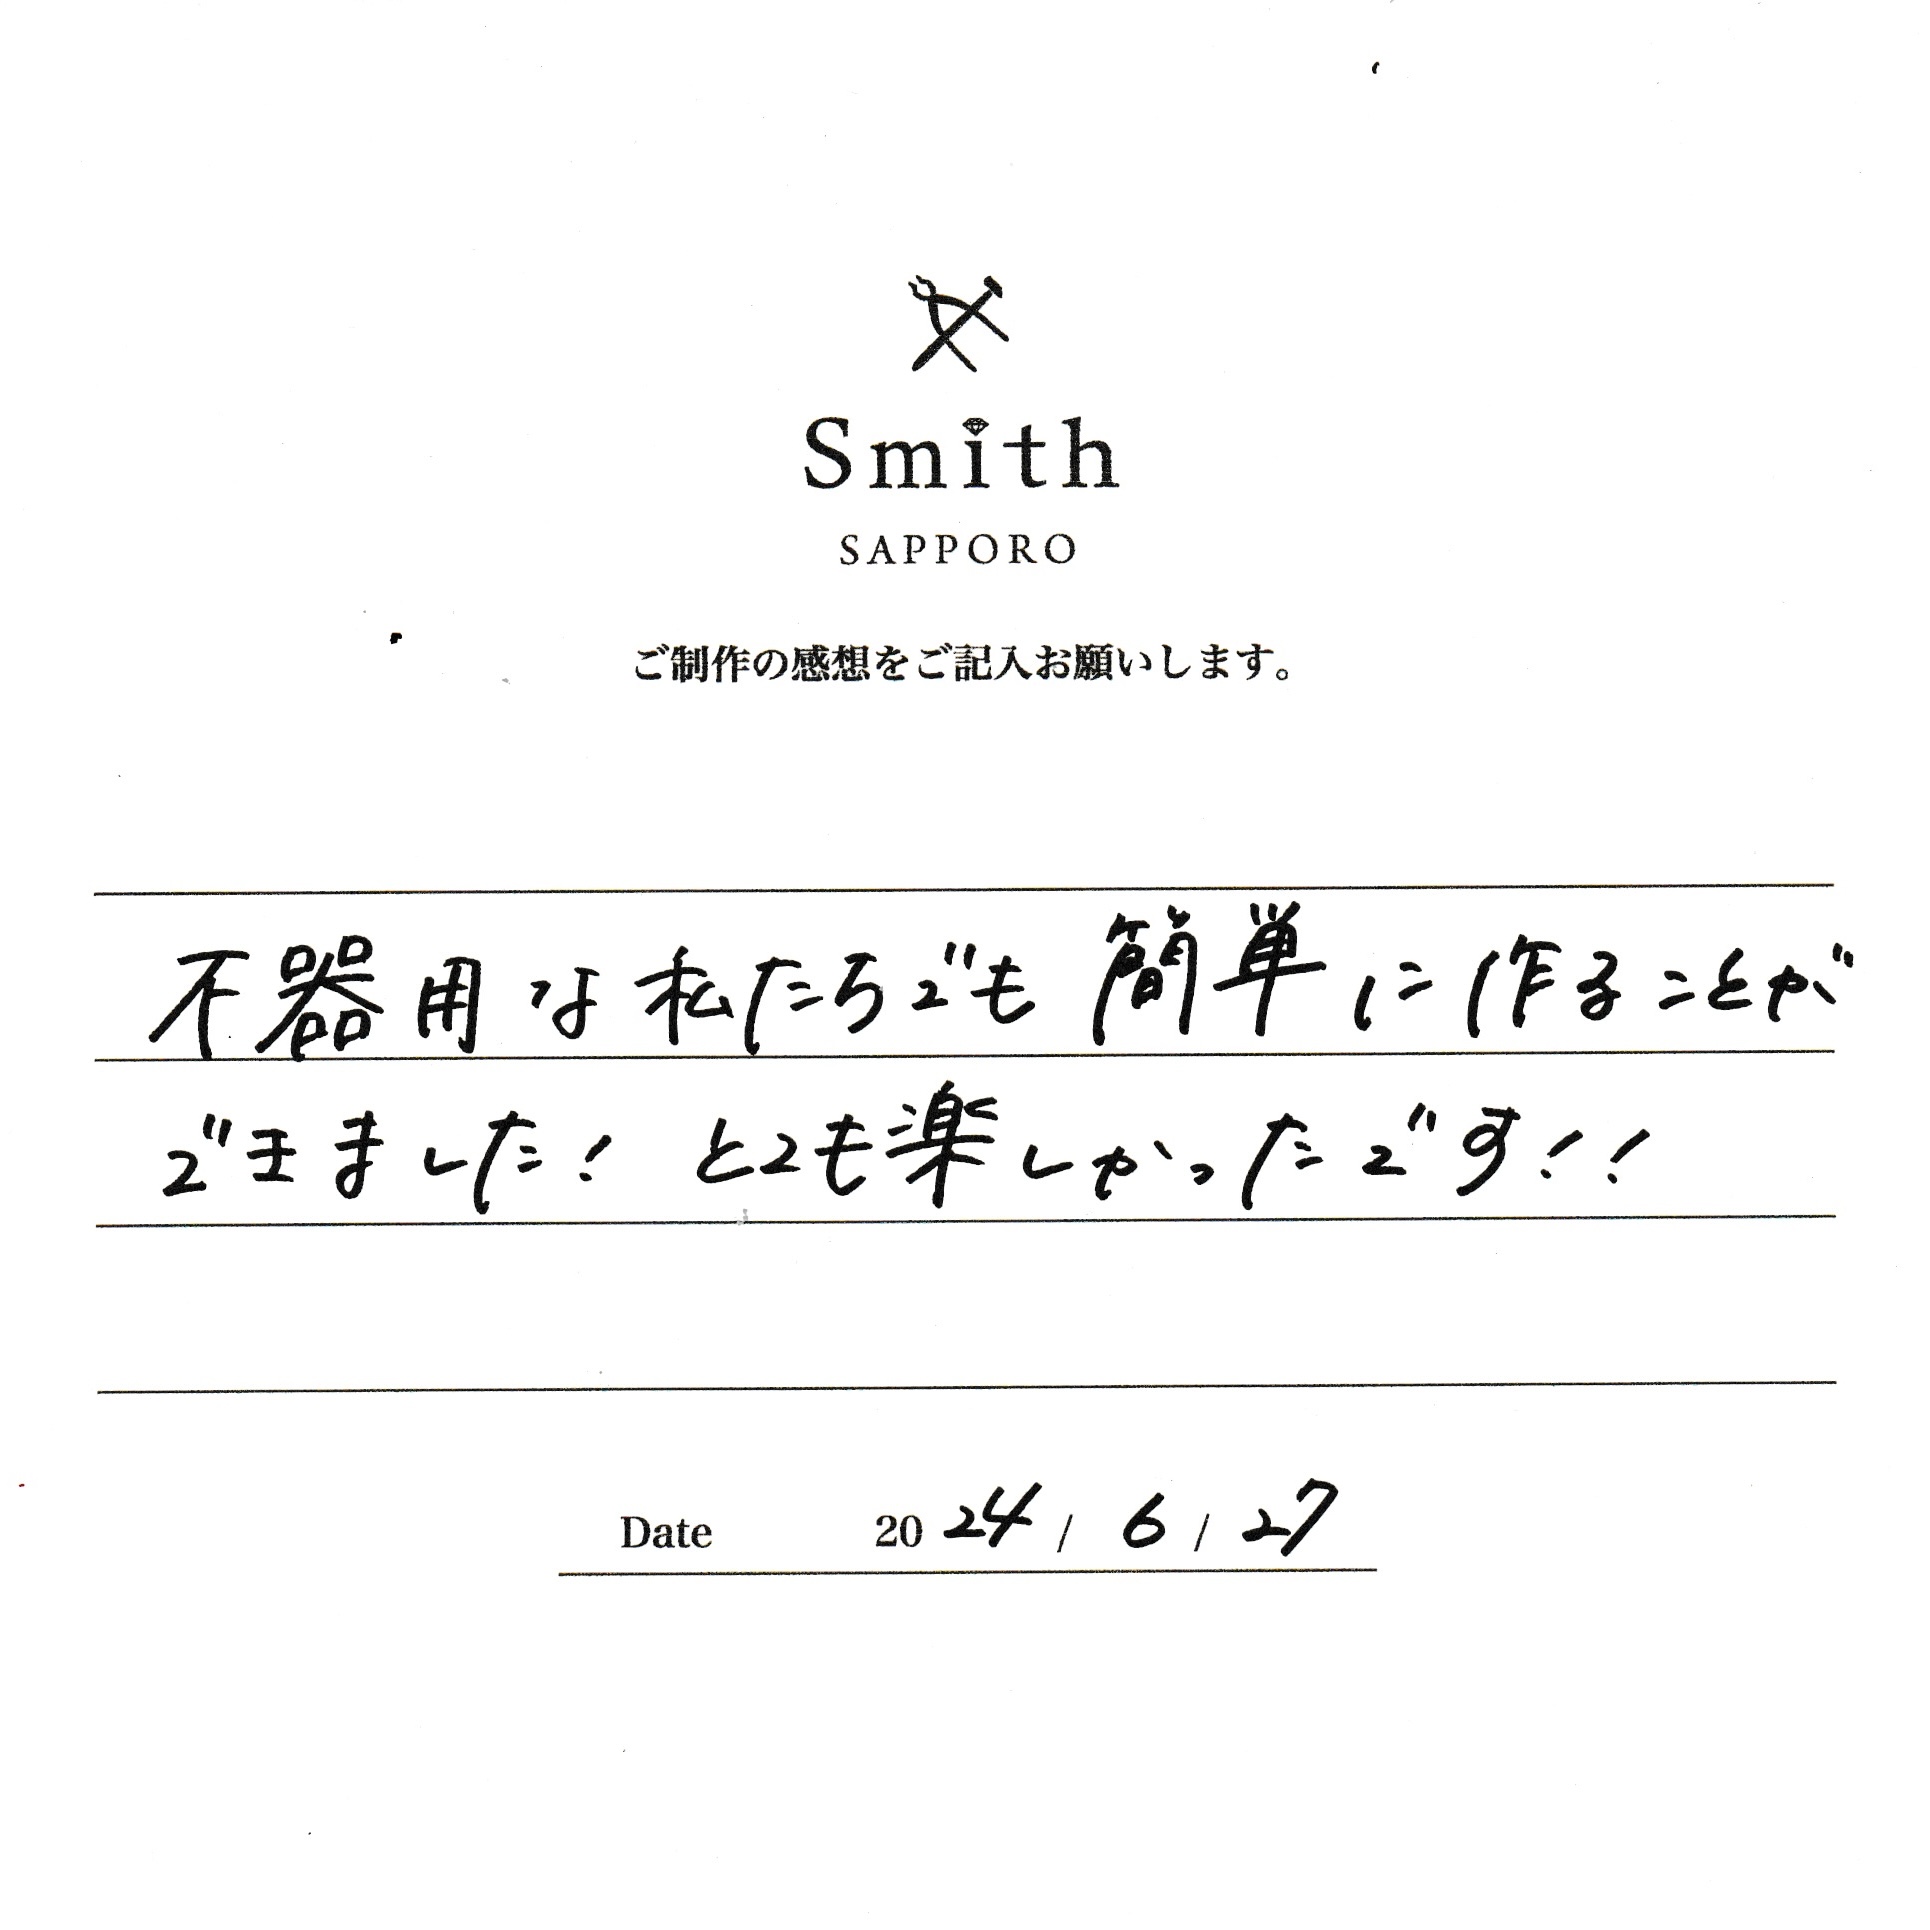 Smith
SAPPORO
ご制作の感想をご記入お願いします。
不器用な私たちでも簡単に作ることが
できました! とても楽しかったです!!
Date 2024 / 6 / 27